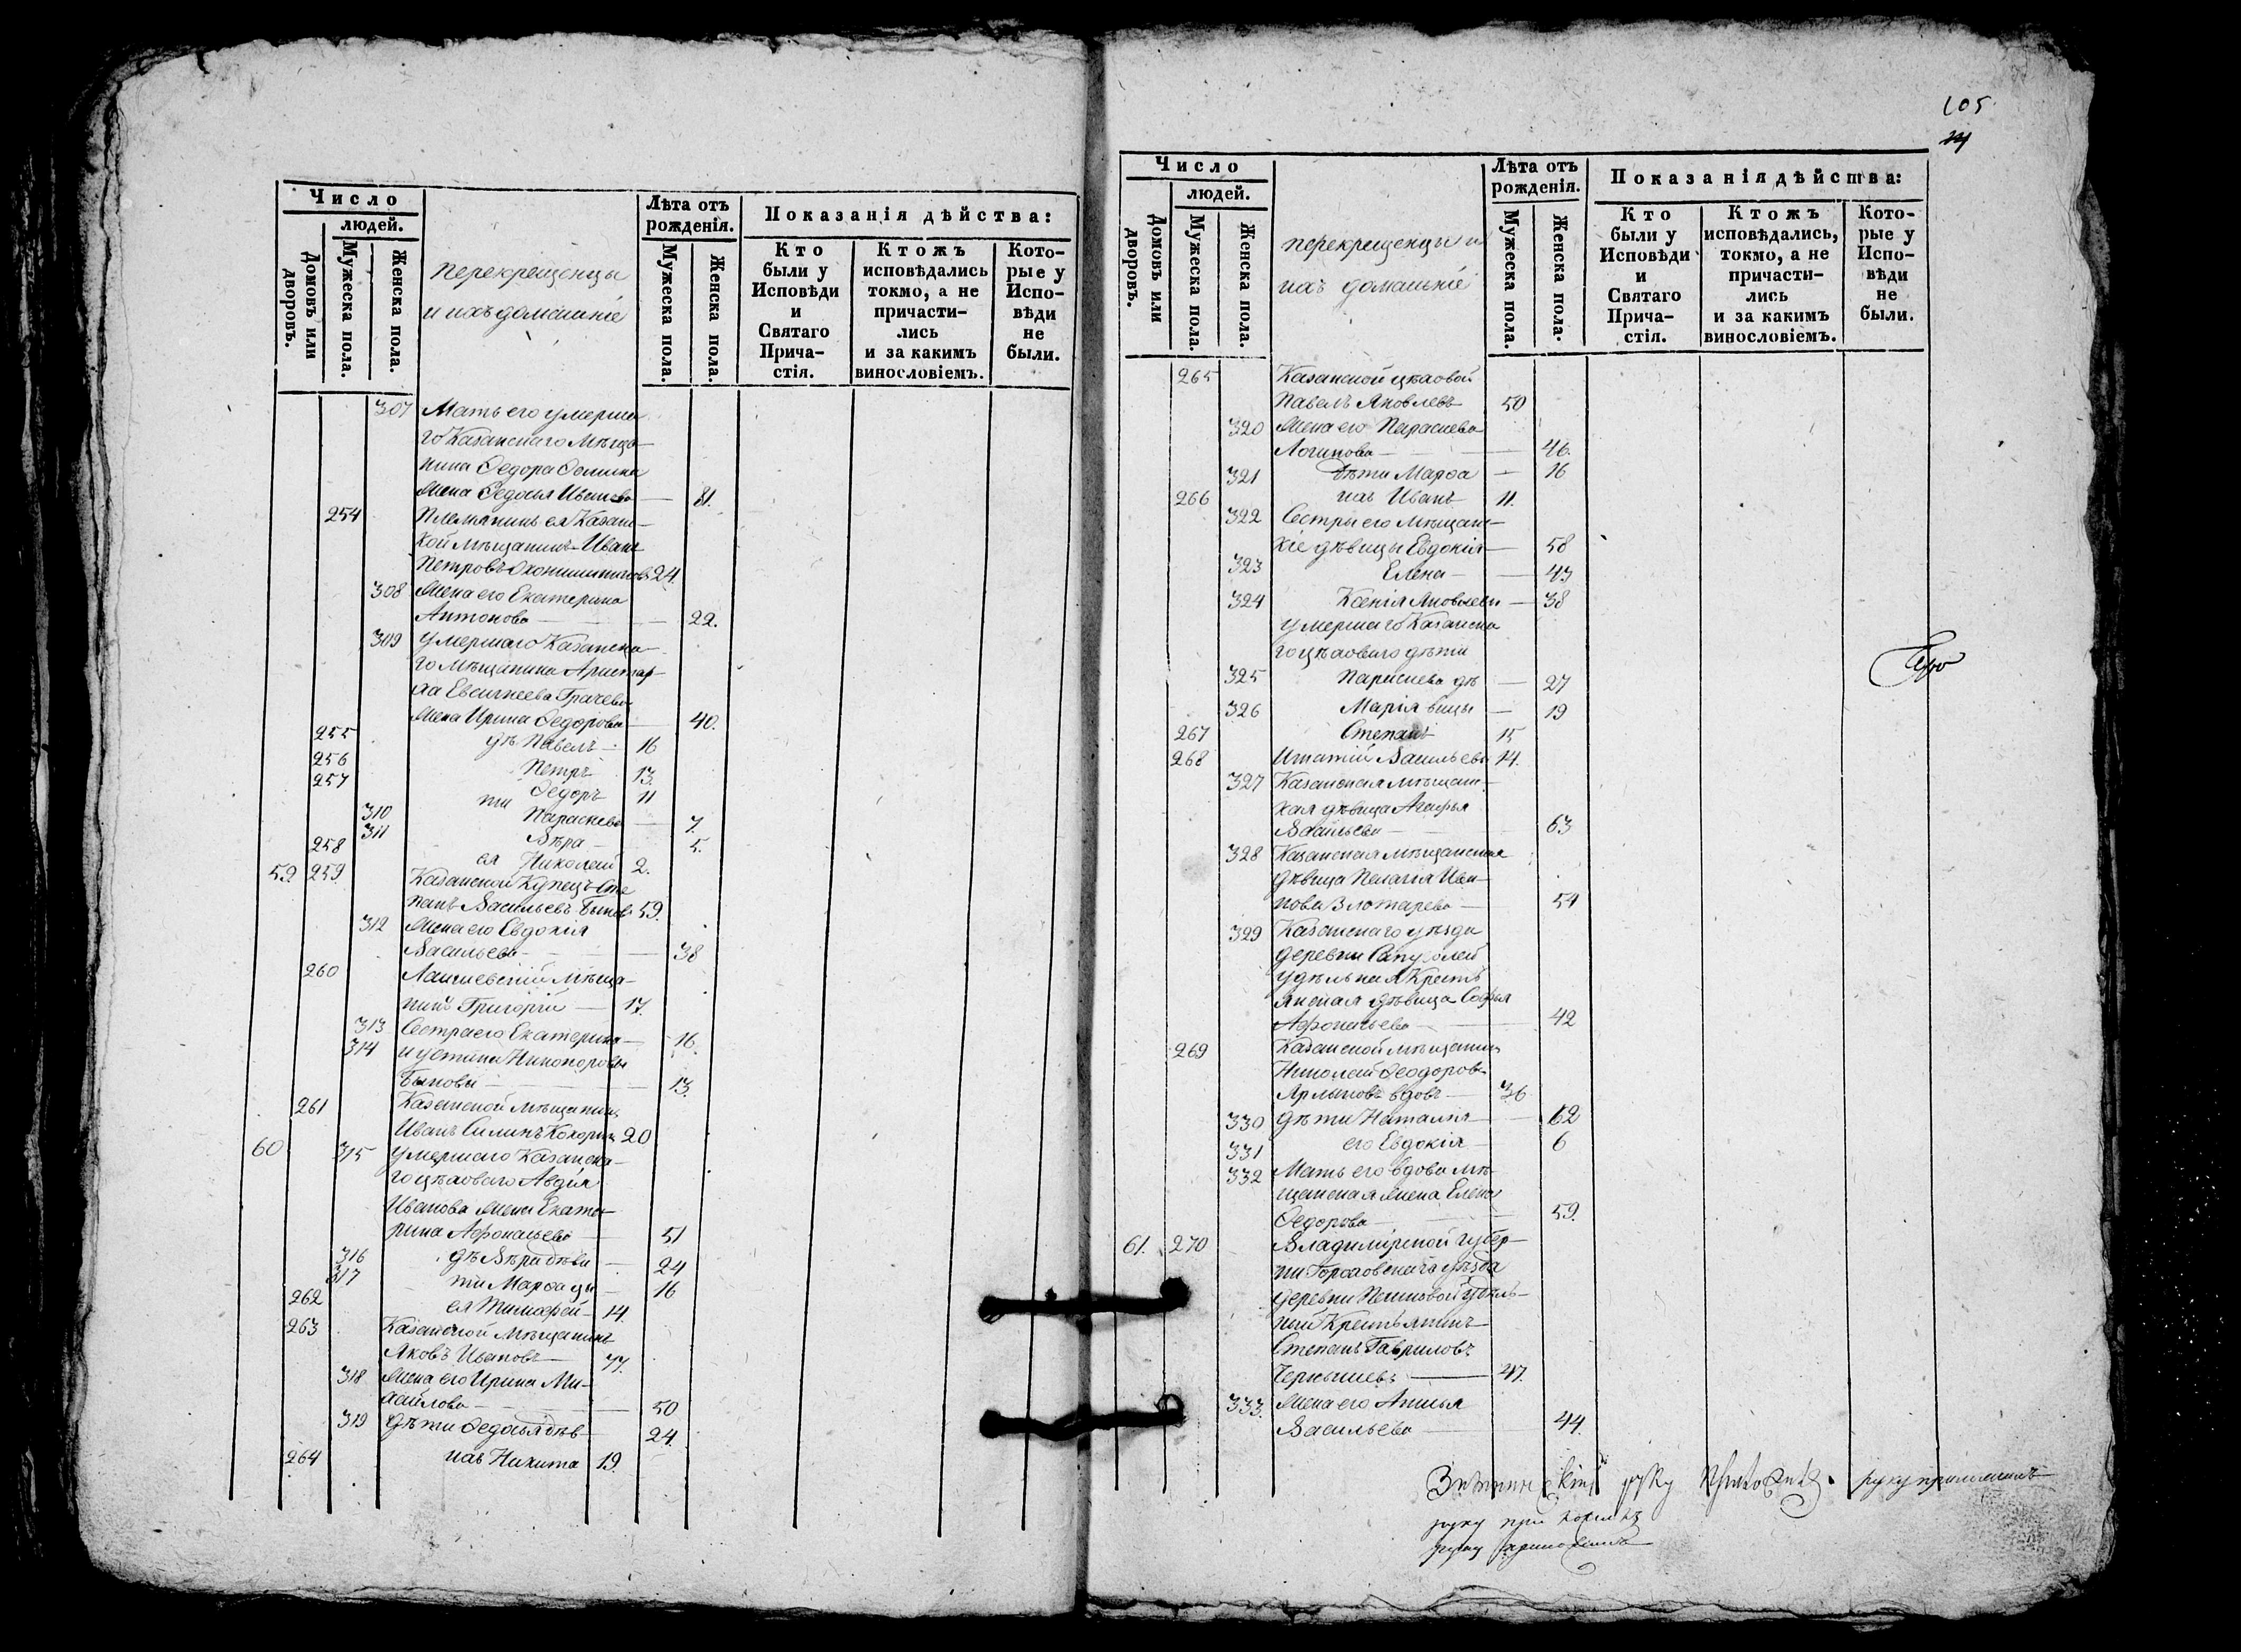 Число
людей.
Домовъ или дворовъ.
Мужеска пола.
Женска пола.
перекрещенцы
и ихъ домашніе
Лѣта отъ рожденія.
Мужеска пола.
Женска пола.
Показанія дѣйства:
Кто были у Исповѣди и Святаго Прича-стія.
Ктожъ исповѣдались токмо, а не причасти-лись и за какимъ винословіемъ.
Кото-рые у Испо-вѣди не были.
307 Мать его умерша
го Казанскаго Мѣща-
нина Ѳедора Осипова
жена Ѳедосья Иванова — 81.
254 Племянникъ ея Казанс-
кой мѣщанинъ Иванъ
Петровъ 24.
308 Жена его Екатерина
Антонова — 22.
309 умершаго Казанска-
го мѣщанина Аристар-
ха Евсигнеева Грачева
жена Ирина Ѳедорова — 40.
255 дѣ Павелъ — 16
256 Петръ 13.
257 ти Ѳедоръ 11
310 Параскева — 7.
311 Вѣра — 5.
258 ея Николай 2.
59. 259. Казанской Купецъ Сте
панъ Васильевъ Быковъ 59.
312 Жена его Евдокія
Васильева — 38
260 Лаишевскій Мѣща-
нинъ Григорій — 17.
313 Сестра его Екатерина — 16.
314 и Устинья Никонорова
Быковы — 13.
261 Казанской мѣщанинъ
Иванъ Силинъ Кокоринъ 20
60 315 умершаго Казанска-
го цѣховаго Авдѣя
Иванова жена Екате-
рина Афонасьева — 51
316 дѣ Вѣра дѣви — 24
317 ти Марѳа цы — 16
262 ея Тимофей — 14.
263 Казанской Мѣщанинъ
Яковъ Ивановъ — 77.
318 Жена его Ирина Ми-
хайлова — 50
319 Дѣти Ѳедосья дѣв — 24.
264 ихъ Никита 19.
105
Число
людей.
Домовъ или дворовъ.
Мужеска пола.
Женска пола.
перекрещенцы и
ихъ домашніе
Лѣта отъ рожденія.
Мужеска пола.
Женска пола.
Показанія дѣйства:
Кто были у Исповѣди и Святаго Прича-стія.
Ктожъ исповѣдались, токмо, а не причасти-лись и за какимъ винословіемъ.
Кото-рые у Испо-вѣди не были.
265 Казанской цѣховой
Павелъ Яковлевъ 50
320 Жена его Параскева
Логинова — 46.
321 Дѣти Марѳа — 16
266 ихъ Иванъ 11.
322 Сестры его мѣщанс-
кіе дѣвицы Евдокія — 58
323 Елена — 43
324 Ксенія Яковлевы — 38
умершаго Казанска
го цѣховаго дѣти
325 Параскева дѣ — 27
326 Марія вицы — 19
267 Степанъ 15
268 Игнатій Васильевы 14.
327 Казанская мѣщанс-
кая дѣвица Агафья
Васильева — 63
328 Казанская мѣщанская
дѣвица Пелагія Ива-
нова Злотарева — 54
329 Казанскаго уѣзда
деревни
удѣльная Кресть
янская дѣвица Софья
Афонасьева — 42
269 Казанской мѣщанинъ
Николай Ѳеодоровъ
вдовъ — 36
330 Дѣти Наталія — 12
331 его Евдокія — 6
332 Мать его вдова мѣ-
щанская жена Елена
Федорова — 59.
61. 270 Владимірской губер-
ни Гороховскаго уѣзда
деревни удѣль-
ный Крестьянинъ
Степанъ Гавриловъ
Чернышевъ — 47.
333. Жена его Анисья
Васильева — 44.
руку приложилъ
руку приложилъ
руку приложилъ